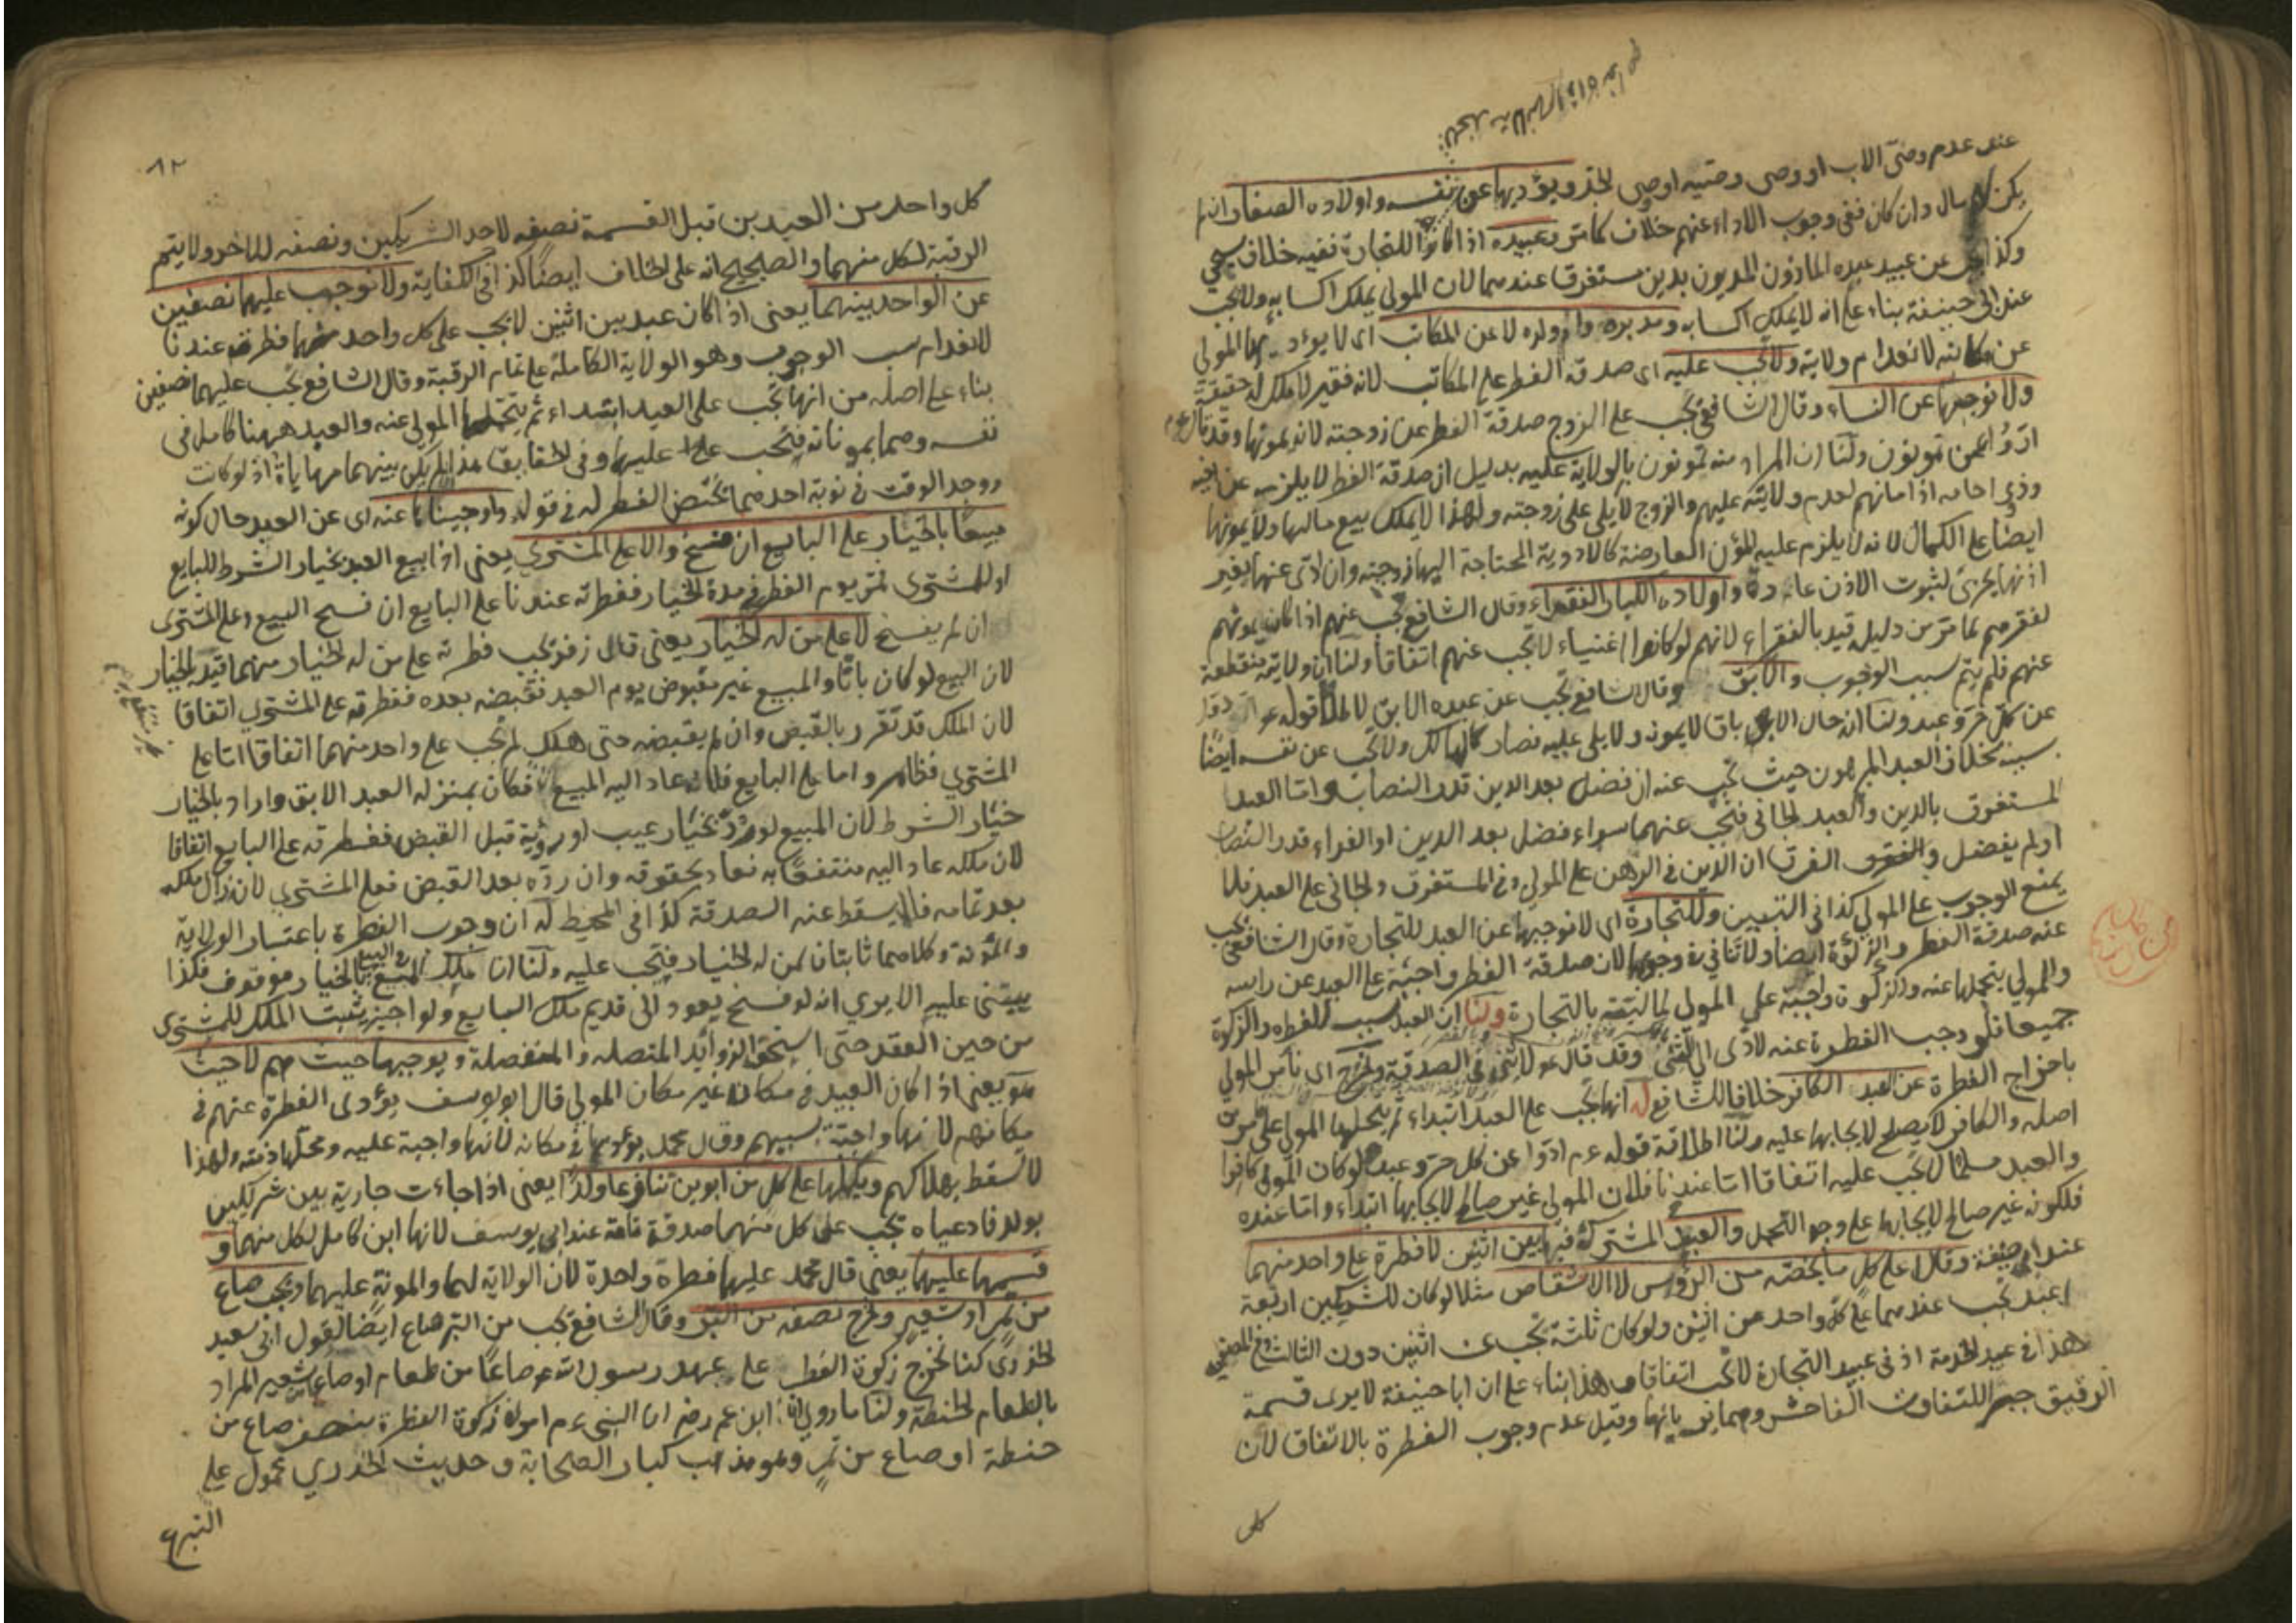 عند عدم وصى الاب او وصى وصيه او وصى الجد ويؤديها عن نفسه واولاده الصغار ان لم
يكن لهم مال وان كان ففى وجوب الاداء عنهم خلاف كما مر وعبيده اذا كانوا للتجارة ففيه خلاف سيجى
وكذا عن عبيد عبده المأذون المديون بدين مستغرق عندهما لان المولى يملك اكسابه ولا يجب
عند ابى حنيفة بناء على انه لا يملك اكسابه ومدبره وام ولده لا عن المكاتب اى لا يؤديها المولى
عن مكاتبه لانعدام ولاية ولا تجب عليه اى صدقة الفطر على المكاتب لانه فقير لا ملك له حقيقة
ولا نوجبها عن النساء وقال الشافعى تجب على الزوج صدقة الفطر عن زوجته لانه يمونها وقد قال عم
ادوا عمن تمونون ولنا ان المراد منه تمونون بالولاية عليه بدليل ان صدقة الفطر لا يلزمه عن اخيه
وذى ارحامه اذا مانهم لعدم ولايته عليهم والزوج لا يلى على زوجته ولهذا لا يملك بيع مالها ولا يمونها
ايضا على الكمال لانه لا يلزم عليه المؤن العارضة كالادوية المحتاجة اليها زوجته وان ادى عنها بغير
اذنها يجزئ لثبوت الاذن عادة واولاده الكبار الفقراء وقال الشافعى تجب عنهم اذا كان يمونهم
لفقرهم لما مر من دليله قيد بالفقراء لانهم لو كانوا اغنياء لا تجب عنهم اتفاقا ولنا ان ولايته منقطعة
عنهم فلم يتم سبب الوجوب والآبق وقال الشافعى تجب عن عبده الآبق لاطلاق قوله عم
عن كل حر وعبد ولنا ان حال الاباق لا يمونه ولا يلى عليه فصار كالهالك ولا تجب عن نفسه ايضا
بخلاف العبد المرهون حيث تجب عنه ان فضل بعد الدين قدر النصاب واما العبد
المستغرق بالدين والعبد الجانى فتجب عنهما سواء فضل بعد الدين او الفداء قدر النصاب
او لم يفضل والفرق ان الدين فى الرهن على المولى وفى المستغرق والجانى على العبد فلا
يمنع الوجوب على المولى كذا فى التبيين وللتجارة اى لا نوجبها عن العبد للتجارة وقال الشافعى تجب
عنه صدقة الفطر والزكوة ايضا ولا تنافى فى وجوبها لان صدقة الفطر واجبة على العبد عن راسه
والمولى يتحملها عنه والزكوة واجبة على المولى لماليته بالتجارة ولنا ان العبد سبب للفطرة والزكوة
جميعا فلو وجب الفطرة عنه لادى الى الثنى وقد قال عم لا ثنى فى الصدقة ونخرج اى نأمر المولى
باخراج الفطرة عن العبد الكافر خلافا للشافعى له انها تجب على العبد ابتداء ثم يتحملها المولى على ما مر من
اصله والكافر لا يصلح لايجابها عليه ولنا اطلاق قوله عم ادوا عن كل حر وعبد ولو كان المولى كافرا
والعبد مسلما لا تجب عليه اتفاقا اما عندنا فلان المولى غير صالح لايجابها ابتداء واما عنده
فلكونه غير صالح لايجابها على وجه التحمل والعبيد المشتركة فيها بين اثنين لا فطرة على واحد منهما
عند ابى حنيفة وقالا على كل ما يخصه من الرؤس لا الاشقاص مثلا لو كان للشريكين اربعة
اعبد تجب عندهما على كل واحد عن اثنين ولو كان ثلثة تجب عن اثنين دون الثالث
هذا فى عبيد الخدمة اذ فى عبيد التجارة لا تجب اتفاقا وهذا بناء على ان ابا حنيفة لا يرى قسمة
الرقيق جبرا للتفاوت الفاحش وهما يريانها وقيل عدم وجوب الفطرة بالاتفاق لان
كل
٨٢
كل واحد من العبدين قبل القسمة نصفه لاحد الشريكين ونصفه للآخر ولا يتم
الرقبة لكل منهما والصحيح انه على الخلاف ايضا كذا فى الكفاية ولا نوجب عليهما نصفين
عن الواحد بينهما يعنى اذا كان عبد بين اثنين لا يجب على كل واحد منهما فطرته عندنا
لانعدام سبب الوجوب وهو الولاية الكاملة على تمام الرقبة وقال الشافعى تجب عليهما نصفين
بناء على اصله من انها تجب على العبد ابتداء ثم يتحملها المولى عنه والعبد ههنا كامل فى
نفسه وهما يمونانه فتجب عليهما وفى الحقايق هذا اذا لم يكن بينهما مهاياة اذ لو كانت
ووجد الوقت فى نوبة احدهما تختص الفطر له فى قول واوجبناها عنه اى عن العبد حال كونه
مبيعا بالخيار على البايع ان فسخ والا على المشترى يعنى اذا بيع العبد بخيار الشرط للبايع
او للمشترى فمر يوم الفطر فى مدة الخيار ففطرته عندنا على البايع ان فسخ البيع وعلى المشترى
ان لم يفسخ لا على من له الخيار يعنى قال زفر تجب فطرته على من له الخيار منهما قيد بالخيار
لان البيع لو كان باتا والمبيع غير مقبوض يوم العيد فقبضه بعده ففطرته على المشترى اتفاقا
لان الملك قد تقرر بالقبض وان لم يقبضه حتى هلك لم تجب على واحد منهما اتفاقا اما على
المشترى فظاهر واما على البايع فلانه عاد اليه المبيع فكان بمنزلة العبد الابق واراد بالخيار
خيار الشرط لان المبيع لو رد بخيار عيب او رؤية قبل القبض ففطرته على البايع اتفاقا
لان ملكه عاد اليه منتفعا به فعاد بحقوقه وان رده بعد القبض فعلى المشترى لان زال ملكه
بعد تمامه فلا يسقط عنه الصدقة كذا فى المحيط له ان وجوب الفطرة باعتبار الولاية
والمؤنة وكلاهما ثابتان لمن له الخيار فتجب عليه ولنا ان ملك المبيع بالخيار موقوف فكذا
يبتنى عليه الا يرى انه لو فسخ يعود الى قديم ملك البايع ولو اجيز يثبت الملك للمشترى
من حين العقد حتى استحق الزوائد المتصلة والمنفصلة ويوجبها حيث هم لا حيث
هو يعنى اذا كان العبيد فى مكان غير مكان المولى قال ابو يوسف يؤدى الفطرة عنهم فى
مكانهم لانها واجبة بسببهم وقال محمد يؤديها فى مكانه لانها واجبة عليه ومحلها ذمته ولهذا
لا تسقط بهلاكهم ويكملها على كل من ابوين تنازعا ولدا يعنى اذا جاءت جارية بين شريكين
بولد فادعياه تجب على كل منهما صدقة تامة عند ابى يوسف لانها ابن كامل لكل منهما و
قسمها عليهما يعنى قال محمد عليهما فطرة واحدة لان الولاية لهما والمونة عليهما ونخرج صاع
من تمر او شعير ونخرج نصفه من البر وقال الشافعى تجب من البر صاع ايضا لقول ابى سعيد
الخدرى كنا نخرج زكوة الفطر على عهد رسول الله عم صاعا من طعام او صاعا من شعير المراد
بالطعام الحنطة ولنا ما روى ابن عمر رضه ان النبى عم امر فى زكوة الفطرة بنصف صاع من
حنطة او صاع من تمر وهو مذهب كبار الصحابة وحديث الخدرى محمول على
التبرع